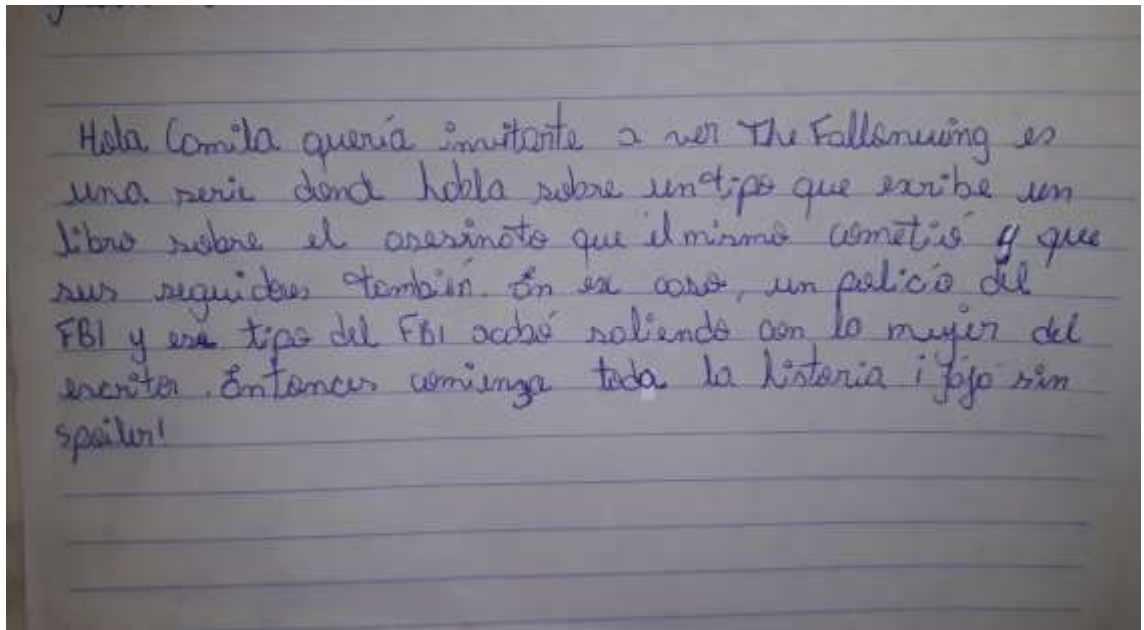 Hola Camila quería invitarte a ver The Fallonwing es
una serie dond habla sobre un tipo que escribe un
libro sobre el asesinato que él mismo cometió y que
sus seguidores también. En ese caso, un policía del
FBI y ese tipo del FBI acabó saliendo con la mujer del
escritor. Entonces comienza toda la historia ¡jajá sin
spoiler!